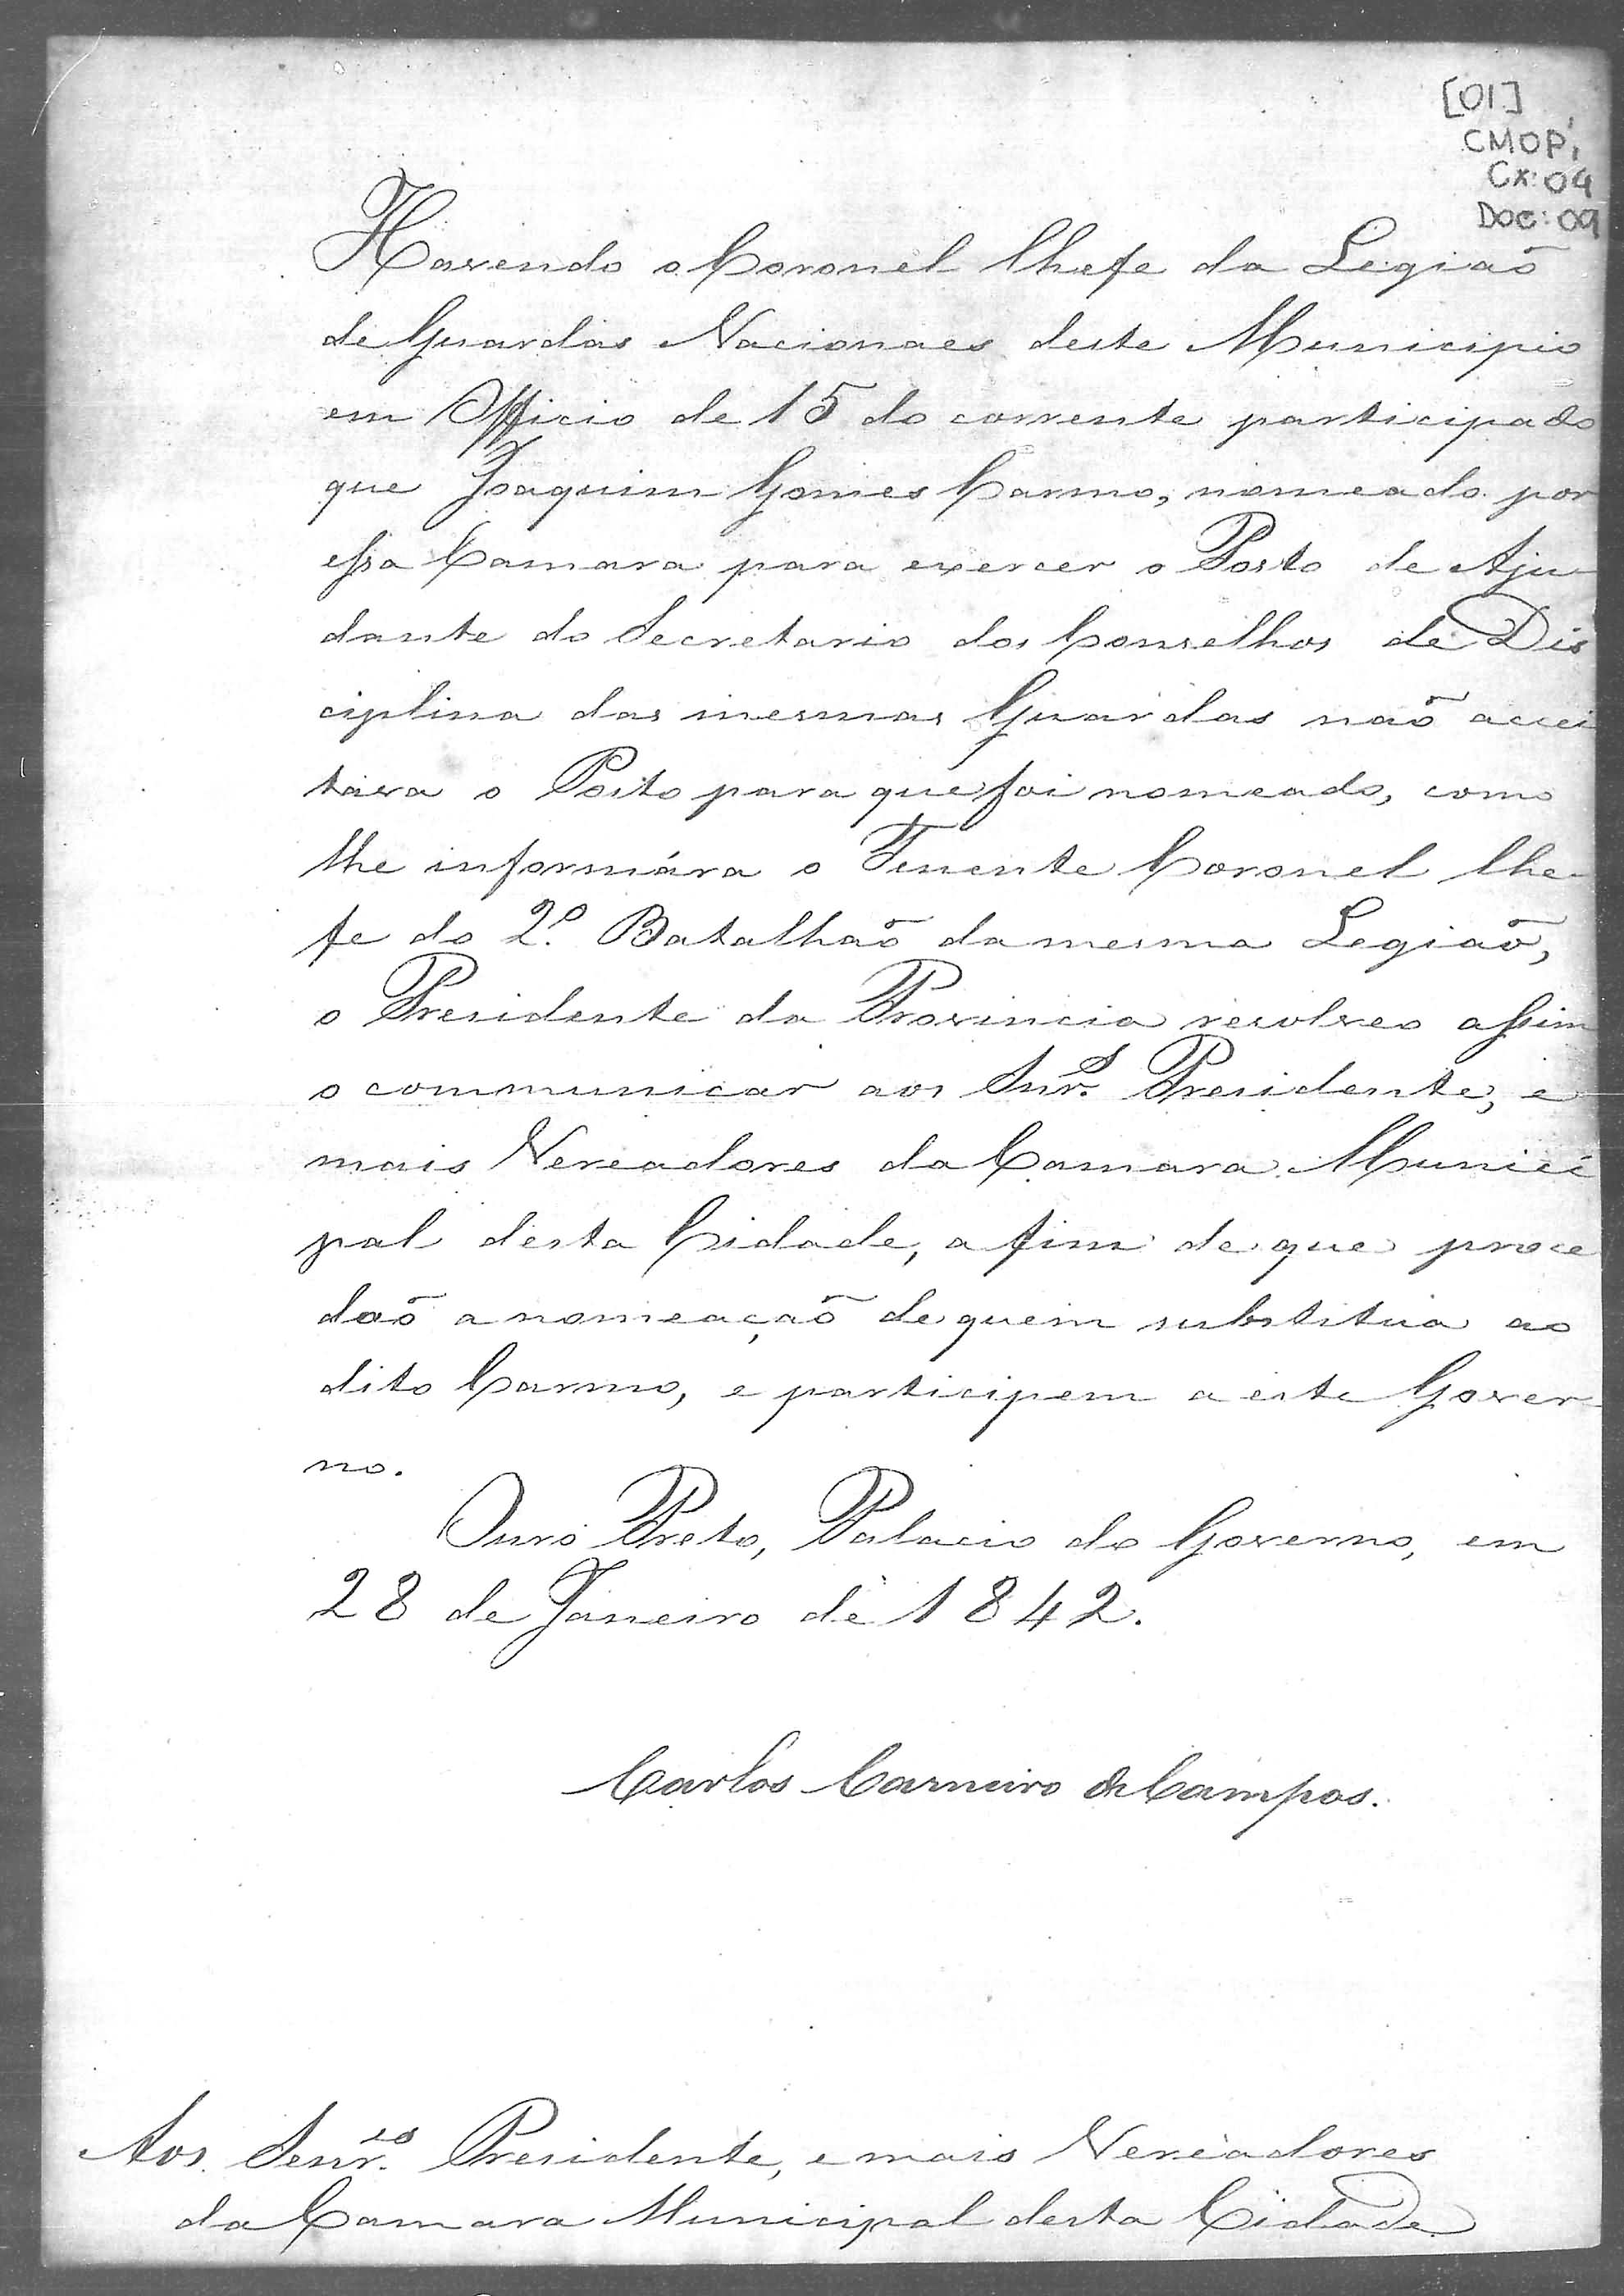 [01]
CMOP,
Cx: 04
DOC: 09
Havendo o Coronel Chefe da Legiaõ
de Guardas Nacionaes deste Municipio
em Officio de 15 do corrente participado
que Joaquim Gomes Carmo, nomeado por
essa Camara para exercer o Posto de Aju
dante do Secretario dos Conselhos de Dis
ciplina das mesmas Guardas naõ accei
tava o Posto para que foi nomeado, como
lhe informára o Tenente Coronel Che
fe do 2.º Batalhaõ da mesma Legiaõ,
o Presidente da Provincia resolveo assim
o communicar aos Snr.s Presidente, e
mais Vereadores da Camara Munici
pal desta Cidade, a fim de que proce
daõ a nomeaçaõ de quem substitua ao
dito Carmo, e participem a este Gover
no.
Ouro Preto, Palacio do Governo, em
28 de Janeiro de 1842.
Carlos Carneiro de Campos.
Aos Senr.es Presidente, e mais Vereadores
da Camara Municipal desta Cidade